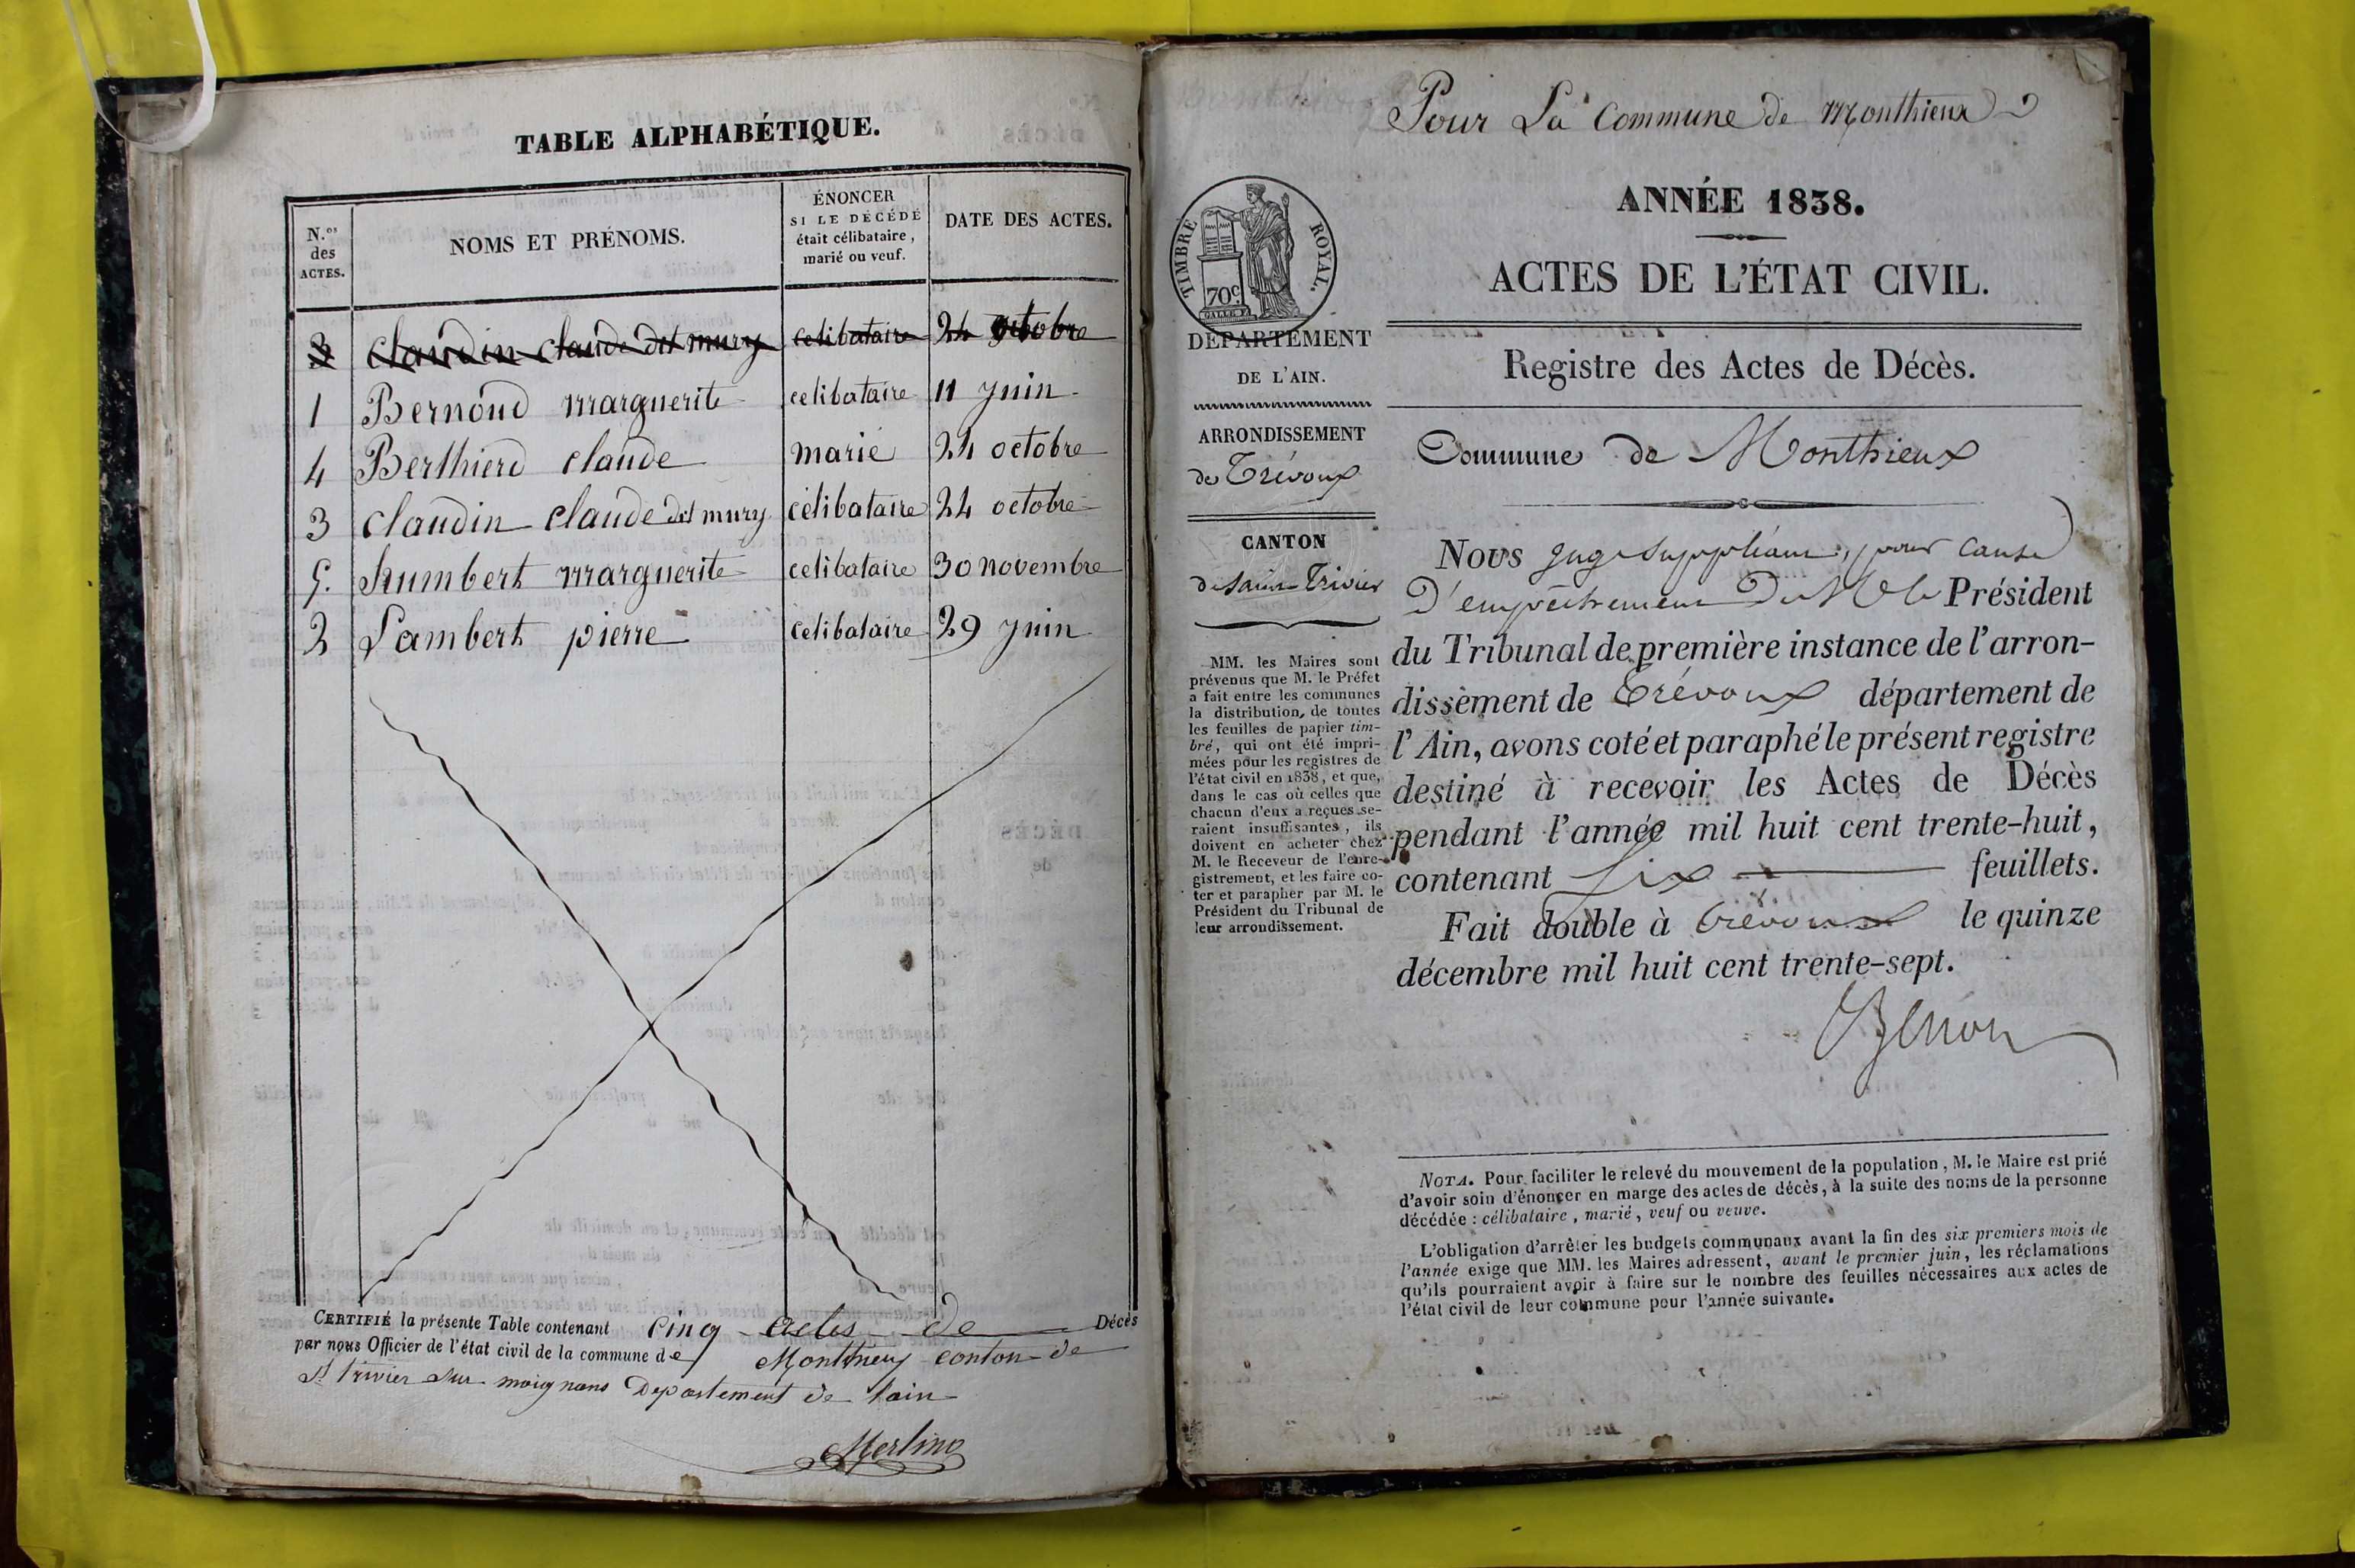 TABLE ALPHABÉTIQUE.
N.os des ACTES.
NOMS ET PRÉNOMS.
ÉNONCER SI LE DÉCÉDÉ était célibataire, marié ou veuf.
DATE DES ACTES.
3 claudin claude dit mury celibataire 24 octobre
1 Bernoud marguerite celibataire 11 juin
4 Berthierd claude marié 24 octobre
3 claudin claude dit mury célibataire 24 octobre
5. humbert marguerite celibataire 30 novembre
2 Lambert pierre celibataire 29 juin
CERTIFIÉ la présente Table contenant cinq actes de Décès
par nous Officier de l'état civil de la commune de Monthieux conton de
St trivier sur moignans Departement de lain
Merlino
Pour La Commune de Monthieux
TIMBRE ROYAL.
70c
ANNÉE 1838.
ACTES DE L'ÉTAT CIVIL.
DÉPARTEMENT
DE L'AIN.
ARRONDISSEMENT
de Trévoux
CANTON
de Saint Trivier
MM. les Maires sont
prévenus que M. le Préfet
a fait entre les communes
la distribution, de toutes
les feuilles de papier tim-
bré, qui ont été impri-
mées pour les registres de
l'état civil en 1838, et que,
dans le cas où celles que
chacun d'eux a reçues se-
raient insuffisantes, ils
doivent en acheter chez
M. le Receveur de l'enre-
gistrement, et les faire co-
ter et parapher par M. le
Président du Tribunal de
leur arrondissement.
Registre des Actes de Décès.
Commune de Monthieux
Nous juge suppléant, pour cause
D'empêchement de M le Président
du Tribunal de première instance de l'arron-
dissement de Trévoux département de
l'Ain, avons coté et paraphé le présent registre
destiné à recevoir les Actes de Décès
pendant l'année mil huit cent trente-huit,
contenant Six feuillets.
Fait double à trévoux le quinze
décembre mil huit cent trente-sept.
NOTA. Pour faciliter le relevé du mouvement de la population, M. le Maire est prié
d'avoir soin d'énoncer en marge des actes de décès, à la suite des noms de la personne
décédée : célibataire, marié, veuf ou veuve.
L'obligation d'arrêter les budgets communaux avant la fin des six premiers mois de
l'année exige que MM. les Maires adressent, avant le premier juin, les réclamations
qu'ils pourraient avoir à faire sur le nombre des feuilles nécessaires aux actes de
l'état civil de leur commune pour l'année suivante.